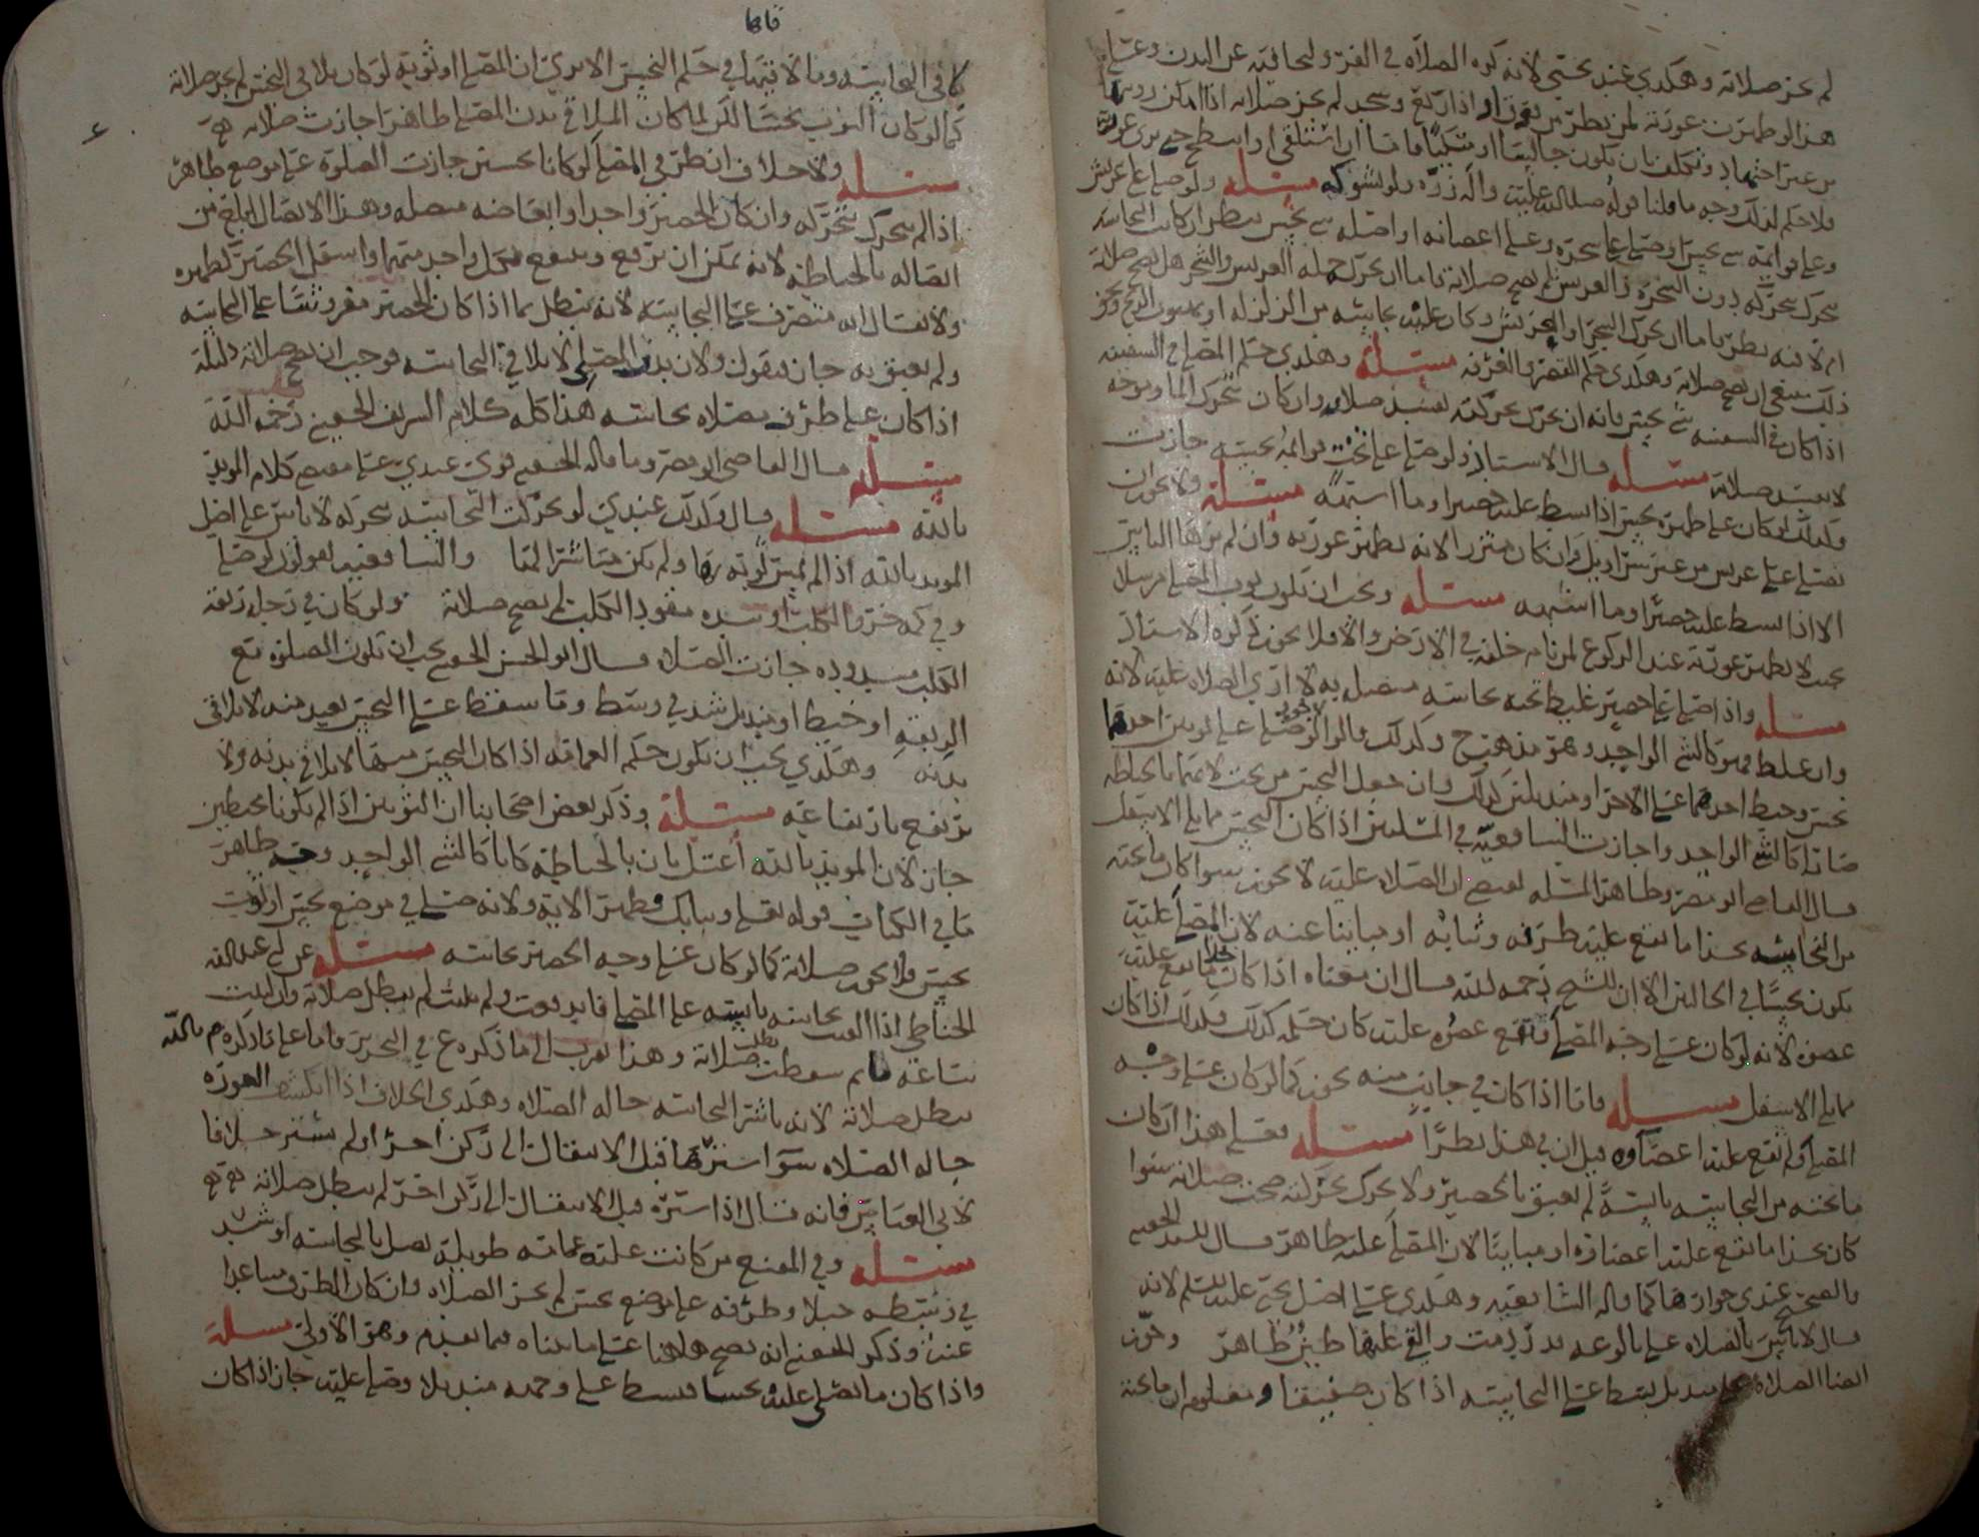 لم يجز صلاته وهكذي عند يحيى لانه كره الصلاة في الفرو لتجافيه عن البدن وعلى
هذا لو ظهرت عورته لمن ينظر من اذا ركع وسجد لم يجز صلاته اذا امكن رويتها
من غير وتكلف بان يكون جالسا او متكيا فاما ان استلقى او انبطح حتى يرى عورته
فلا حكم لذلك وجه ما قلنا قوله صلى الله عليه واله زره ولو بشوكه مسئلة ولو صلى على عريش
وعلى قوائمه شي نجس او صلى على شجرة وعلى اعضائه او اصله شي نجس ينظر ان كانت النجاسة
تتحرك بتحركه دون الشجرة والعريش لم يصح صلاته فاما ان تحرك جملة العريش والشجر هل يصح صلاته
ام لا فيه نظر فاما ان تحرك الشجر او العريش وكان عليه نجاسة من الزلزلة او هبوب الريح ونحو
ذلك ينبغي ان تصح صلاته وهكذي حكم القصر والغرفة مسئلة وهكذي حكم المصلي في السفينة
اذا كان في السفينة شي نجس فانه ان تحرك بحركته تفسد صلاته وان كان بتحرك الما وموجه
لا تفسد صلاته مسئلة قال الاستاذ ولو صلى على تخت قوائمه نجسة جازت
وكذلك لو كان على ظهره نجس اذا بسط عليه حصيرا وما اشبهه مسئلة ولا يجوز ان
يصلي على عريس من غير سراويل وان كان متزرا لانه يظهر عورته وان لم يرها الناس
الا اذا بسط عليه حصيرا وما اشبهه مسئلة ويجب ان يكون ثوب المصلي مرسلا
بحيث لا يظهر عورته عند الركوع لمن نام خلفه في الارض والا فلا يجوز ذكره الاستاذ
مسئلة واذا صلى على حصير غليظ تحته نجاسة متصل به لا ارى الصلاة عليه لانه
وان غلظ فهو كالشي الواحد وهو مذهب ح وكذلك قالوا لا يجوز لو صلى على ثوبين احدهما
نجس وخيط احدهما على الاخر او منديلين كذلك وان جعل النجس من تحت لانهما بالخياطة
صارا كالشي الواحد واجازت الشافعية في المسلتين اذا كان النجس مما يلي الاسفل
قال القاضي ابو مضر وظاهر المسلة يقتضي ان الصلاة عليه لا تجوز سوا كان ما تحته
من النجاسة بحذا ما يقع عليه طرفه وثيابه او مباينا عنه لان المصلى عليه
يكون نجسا في الحالين الا ان الشيخ رحمه الله قال ان معناه اذا كان بحذا ما يقع عليه
عضوه لانه لو كان على وجه المصلى ويقع عضوه عليه كان حكمه كذلك وكذلك اذا كان
مما يلي الاسفل مسئلة فاما اذا كان في جانب منه يجوز كما لو كان على وجه
المصلى ولم يقع عليه اعضاؤه قيل ان في هذا نظرا مسئلة فعلى هذا ان كان
ما تحته من النجاسة يابسة لم تعبق بالحصير ولا تحرك بحركته صحت صلاته سوا
كان بحذا ما يقع عليه اعضاؤه او مباينا لان المصلى عليه طاهر قال السيد الحقيني
والصحيح عندي جوازها كما قاله الشافعيه وهكذي على اصل يحيى عليه السلم لانه
قال لا باس بالصلاة على بالوعة قد ردمت والقي عليها طين طاهر وجوز
ايضا الصلاة على منديل بسط على النجاسة اذا كان صفيقا ومعلوم ان ما تحته
كافي النجاسة وبالا فيهما في حكم النجس الا ترى ان المصلي او ثوبه لو كان يلاقي النجس لم يجز صلاته
كما لو كان الثوب نجسا لكن لما كان الملاقي بدن المصلي طاهرا جازت صلاته
مسئلة ولا خلاف ان طرفي المصلى لو كانا نجسين جازت الصلوة على موضع طاهر
اذا لم يتحرك بتحركه وان كان الحصير واحدا وابعاضه متصلة وهذا الاتصال ابلغ من
اتصاله بالخياطة لانه يمكن ان ترفع ويقع كل واحد منهما واسفل الحصير لظهره
ولا يقال انه متصرف على النجاسة لانه يبطل بما اذا كان الحصير مفروشا على النجاسة
ولم يعبق به جاز فيقول ولان بدن المصلي لا يلاقي النجاسة فوجب ان تصح صلاته دليله
اذا كان على طرف مصلاه نجاسة هذا كله كلام الشريف الحقيني رحمه الله
مسئلة قال القاضي ابو مضر وما قاله الحقيني قوي عندي على مقتضى كلام المويد
بالله مسئلة قال وكذلك عندي لو تحركت النجاسة بتحركه لا باس على اصل
المويد بالله اذا لم يمس ثوبه بها ولم يكن مباشرا لها والشافعية يقولون لو صلى
وفي كمه جرو الكلب او بيده مقود الكلب لم يصح صلاته ولو كان في رجله ربقة
الكلب مشدودة جازت الصلاة قال ابو الحسن الحقيني يجب ان تكون الصلوة مع
الربقة او خيط او منديل شد في وسط وما سقط على النجس بعيد منه لا يلاقي
بدنه وهكذي يجب ان يكون حكم العمامة اذا كان النجس منها لا يلاقي بدنه ولا
يرتفع بارتفاعه مسئلة وذكر بعض اصحابنا ان الثوبين اذا لم يكونا مخيطين
جاز لان المويد بالله اعتل بان بالخياطة كانا كالشي الواحد وجه ظاهر
ما في الكتاب قوله تعالى وثيابك فطهر الاية ولانه صلى في موضع نجس او ثوب
نجس فلا يجوز صلاته كما لو كان على وجه الحصير نجاسة مسئلة عن ابي عبدالله
الحناطي اذا القيت نجاسة يابسة على المصلي فابعدت ولم تلبث لم تبطل صلاته وان لبثت
ساعة ثم سقطت بطلت صلاته وهذا يقرب الى ما ذكره ع في التحرير فاما على ما ذكره م بالله
تبطل صلاته لانه باشر النجاسة حالة الصلاة وهكذي الخلاف اذا انكشف العورة
حالة الصلاة سوا سترها قبل الانتقال الى ركن اخر او لم يستر خلافا
لابي العباس فانه قال اذا ستره قبل الانتقال الى ركن اخر لم تبطل صلاته
مسئلة وفي المقنع من كانت عليه عمامة طويلة تصل بالنجاسة او شد
في وسطه حبلا وطرفه على موضع نجس لم يجز الصلاة وان كان الطرف متباعدا
عنه وذكر الحقيني انه يصح هاهنا على ما بيناه فيما تقدم وهو الاولى مسئلة
واذا كان ما يصلي عليه نجسا فبسط على وجهه منديلا وصلى عليه جاز اذا كان